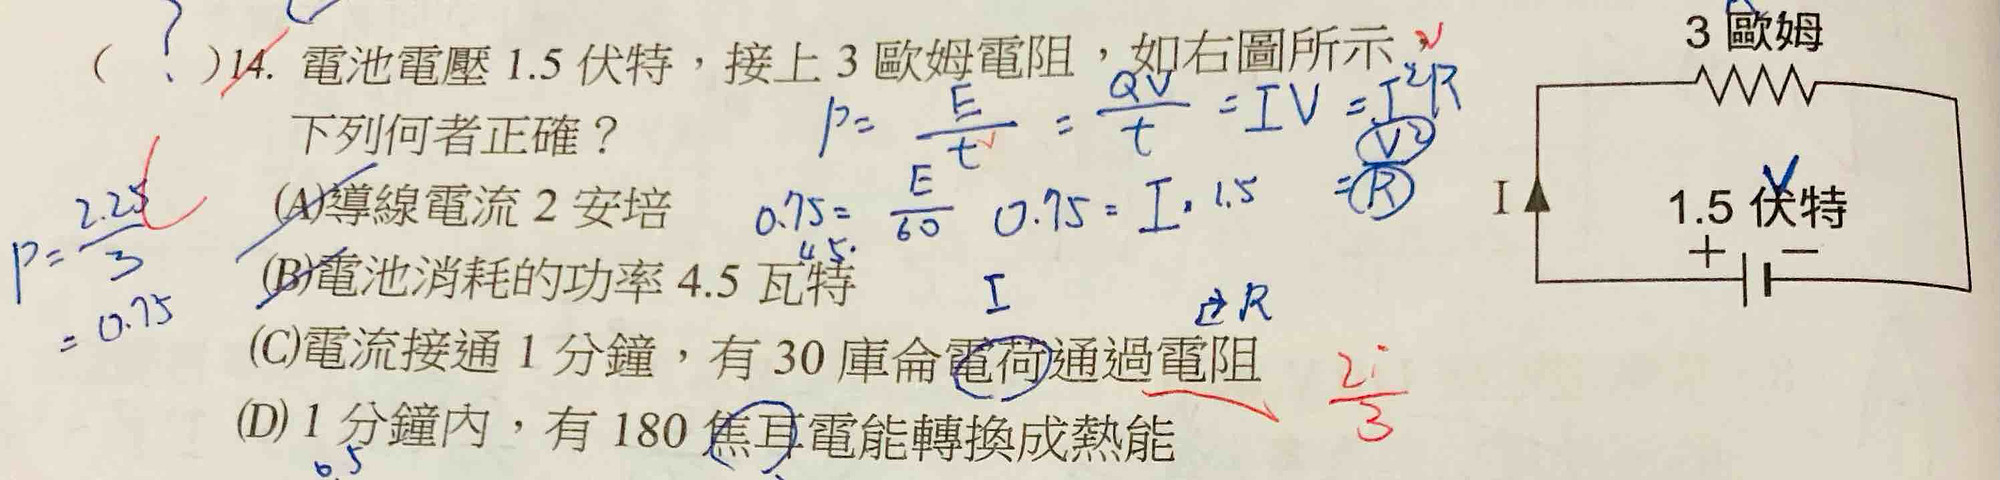 ( ? )14. 電池電壓 1.5 伏特，接上 3 歐姆電阻，如右圖所示，
下列何者正確？
P= E/t = QV/t = IV = I²R
= V²/R
(A)導線電流 2 安培
0.75= E/60 0.75= I. 1.5
45.
(B)電池消耗的功率 4.5 瓦特
P= 2.25/3
= 0.75
I
R
(C)電流接通 1 分鐘，有 30 庫侖電荷通過電阻
(D) 1 分鐘內，有 180 焦耳電能轉換成熱能
3 歐姆
I
V
1.5 伏特
+ −